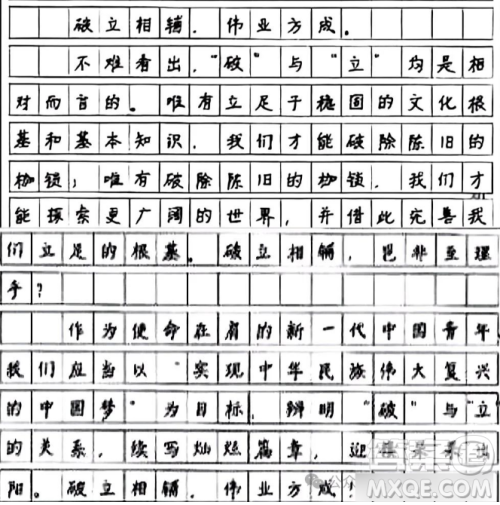 破立相辅，伟业方成。
不难看出，"破"与"立"均是相
对而言的。唯有立足于稳固的文化根
基和基本知识，我们才能破除陈旧的
枷锁；唯有破除陈旧的枷锁，我们才
能探索更广阔的世界，并借此完善我
们立足的根基。破立相辅，岂非至理
乎？
作为使命在肩的新一代中国青年，
我们应当以"实现中华民族伟大复兴
的中国梦"为目标，辨明"破"与"立"
的关系，续写灿烂篇章，迎接未来出
阳。破立相辅，伟业方成！
MXQE.COM